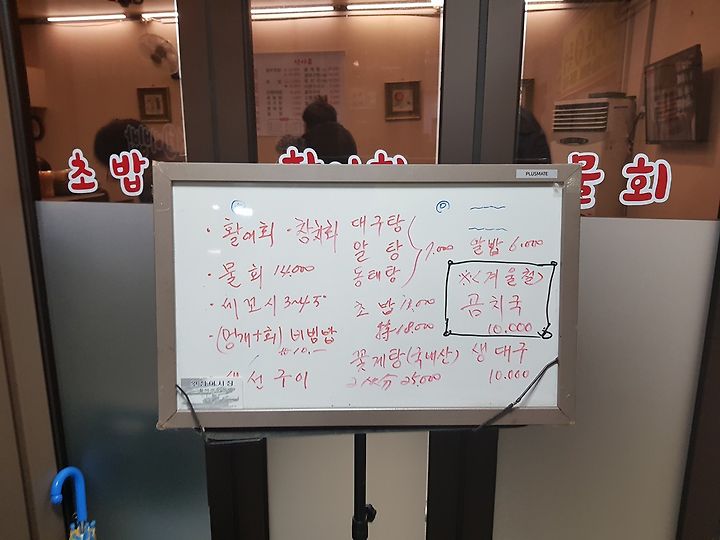 초밥
물회
PLUSMATE
· 활어회 · 참치회
· 물회 14,000
· 세꼬시 3~4.5
· (멍게+회) 비빔밥
#10.-
생선구이
대구탕
알탕
동태탕
7,000
초밥 13,000
特 18,000
꽃게탕(국내산)
25,000
알밥 6,000
※<겨울철>
곰치국
10,000
생대구
10,000